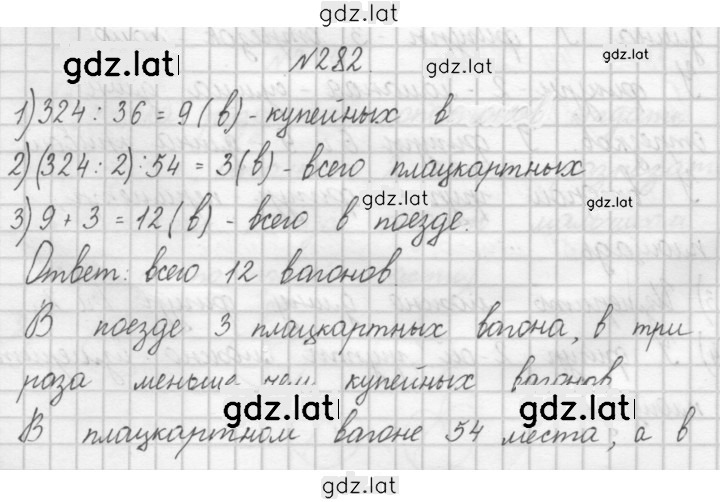 gdz.lat
gdz.lat
№282.
gdz.lat
gdz.lat
1) 324 : 36 = 9 (в) - купейных в
2) (324 : 2) : 54 = 3 (в) - всего плацкартных
gdz.lat
gdz.lat
3) 9 + 3 = 12 (в) - всего в поезде.
Ответ: всего 12 вагонов.
В поезде 3 плацкартных вагона, в три
раза меньше чем купейных вагонов
gdz.lat
gdz.lat
В плацкартном вагоне 54 места, а в
gdz.lat